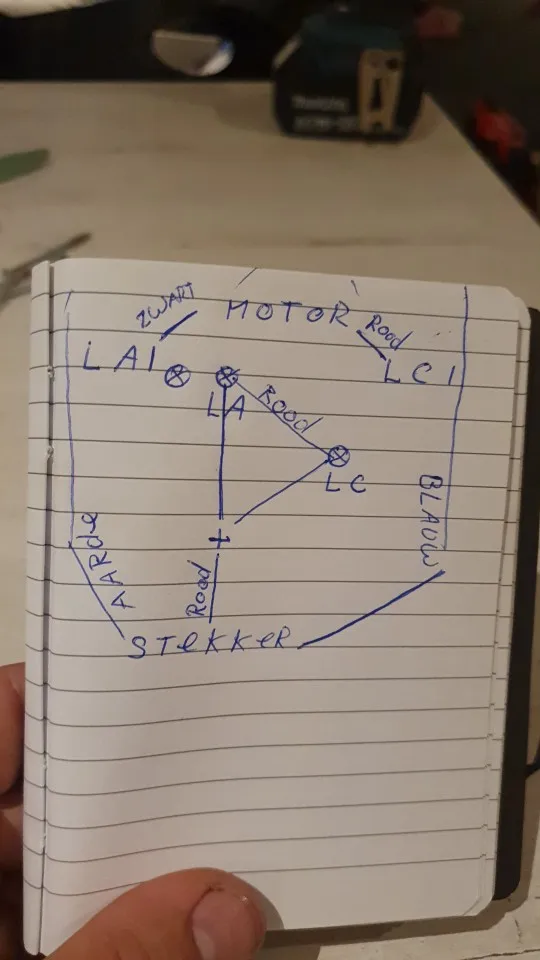 ZWART
MOTOR
Rood
LA1
LC1
LA
Rood
LC
BLAUW
AARde
+
Rood
STeKKeR